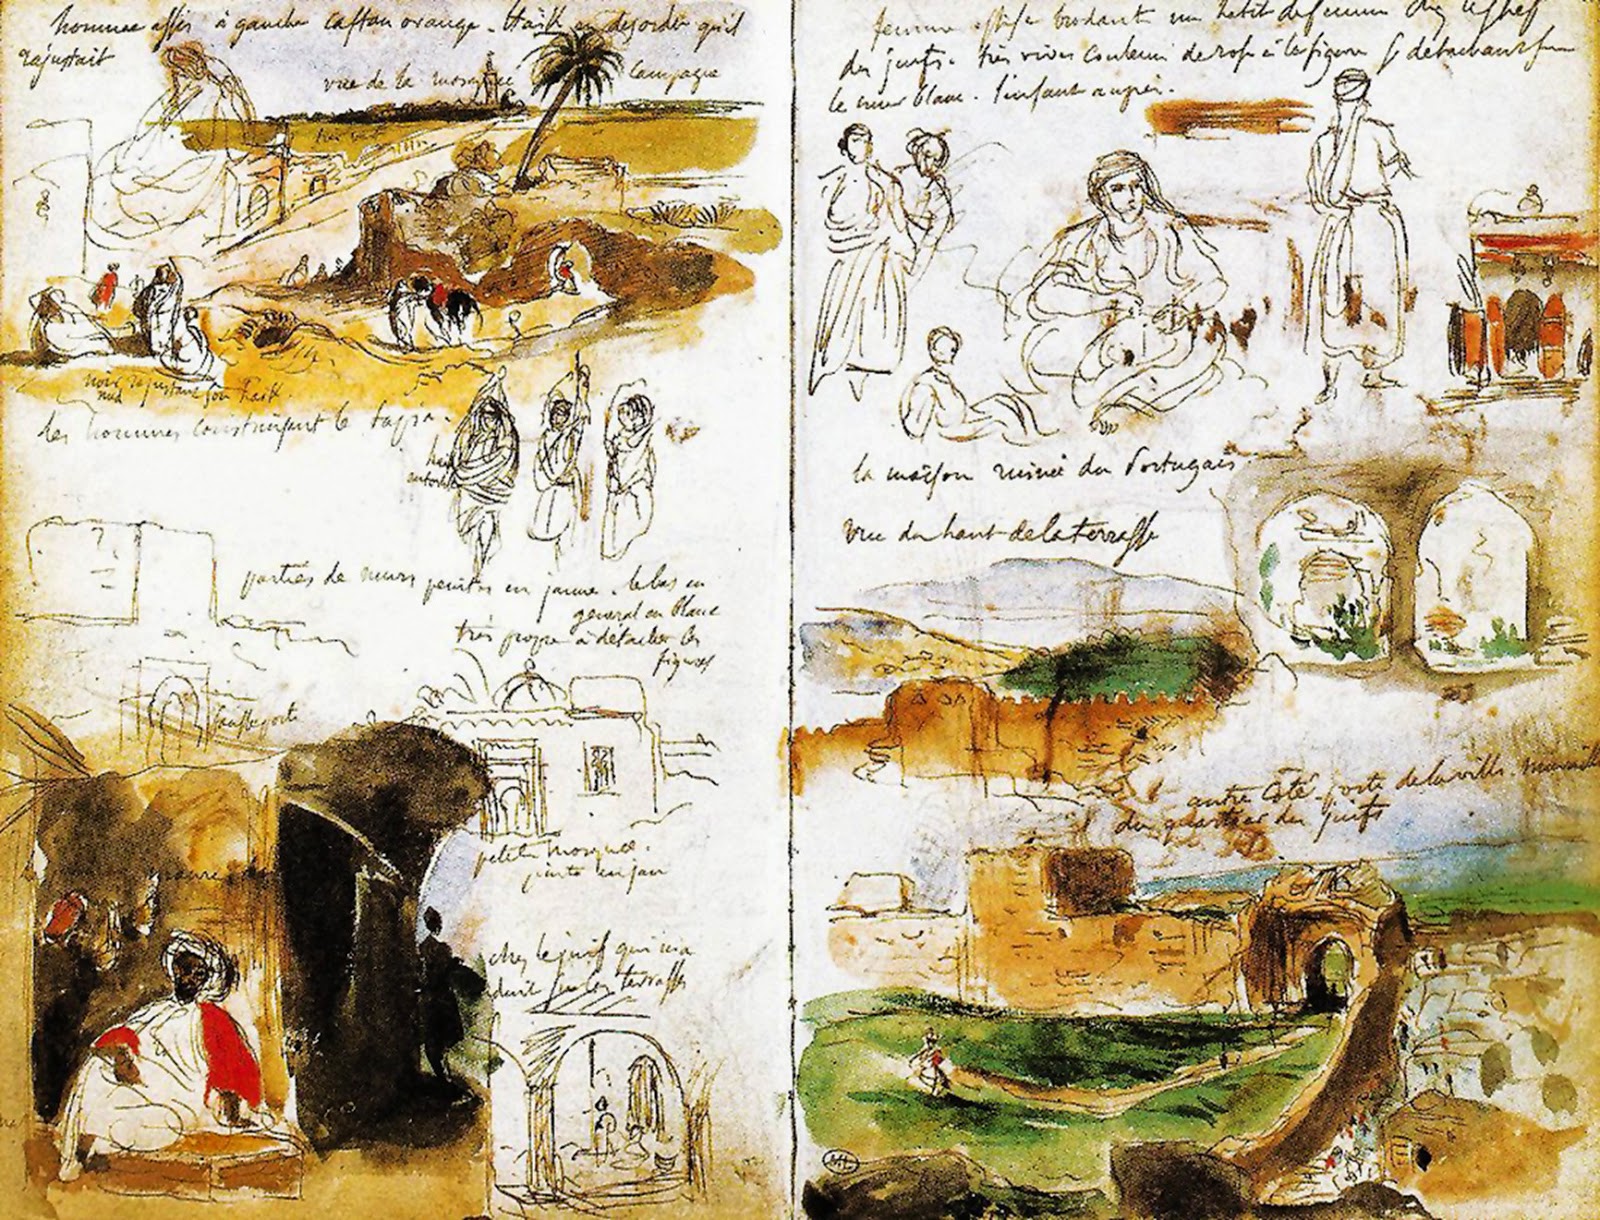 homme assis à gauche caftan orange. Haïk en désordre qu'il
rajustait
vue de la mosquée
Campagne
noir rajustant son haïk
nud
les hommes construisant le
parties de murs peintes en jaune. le bas en
general en blanc
très propre à détacher les
figures
fausse porte
petite mosquée.
chez le juif qui m'a
conduit sur les terrasses
femme assise brodant un habit de femme chez
des juifs. très vives couleurs de rose à la figure se détachant sur
le mur blanc. l'enfant auprès.
la maison ruinée du Portugais
vue du haut de la terrasse
autre côté porte de la ville. muraille
du quartier des juifs